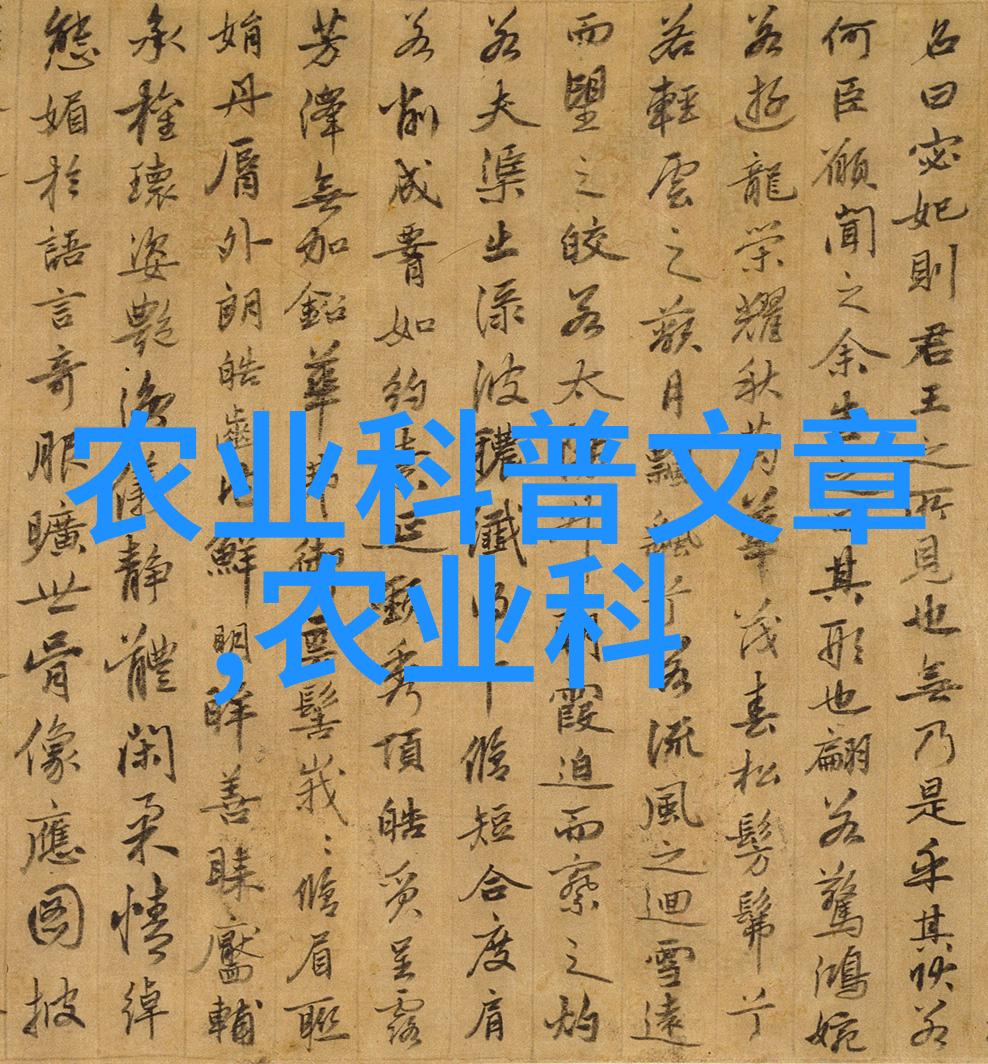 名曰宓妃則君王之所見也無乃是乎其狀若
何臣願聞之余告之曰其形也翩若驚鴻婉
若遊龍榮耀秋菊華茂春松髣髴兮
若輕雲之蔽月飄飖兮若流風之迴雪遠
而望之皎若太陽升朝霞迫而察之灼
若夫渠出淥波穠纖得中脩短合度肩
若削成要如約素延頸秀項皓質呈露
芳澤無加鉛華弗御雲髻峩〻脩眉聯
娟丹脣外朗皓齒內鮮明眸善睞靨輔
承權瓌姿艷逸儀靜體閑柔情綽
態媚於語言奇服曠世骨像應圖披
农业科普文章
,农业科